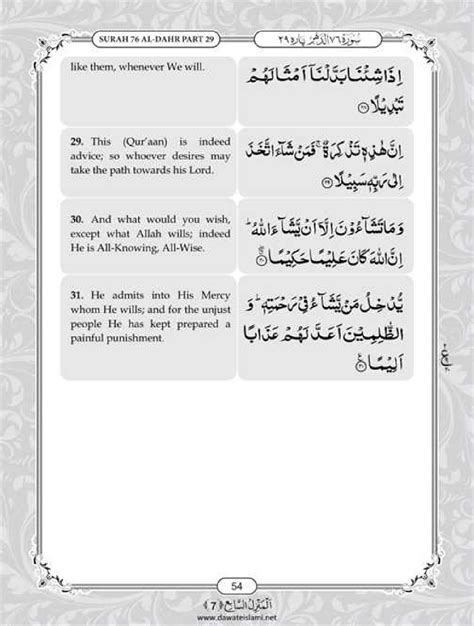 SURAH 76 AL-DAHR PART 29
سُوْرَةُ ٧٦ الدَّهْر پاره ٢٩
like them, whenever We will.
اِذَا شِئْنَا بَدَّلْنَاۤ اَمْثَالَهُمْ
تَبْدِیْلًا ۝۲۸
29. This (Qur'aan) is indeed
advice; so whoever desires may
take the path towards his Lord.
اِنَّ هٰذِهٖ تَذْكِرَةٌ ۚ فَمَنْ شَآءَ اتَّخَذَ
اِلٰى رَبِّهٖ سَبِیْلًا ۝۲۹
30. And what would you wish,
except what Allah wills; indeed
He is All-Knowing, All-Wise.
وَمَا تَشَآءُوْنَ اِلَّاۤ اَنْ یَّشَآءَ اللّٰهُ ؕ
اِنَّ اللّٰهَ كَانَ عَلِیْمًا حَكِیْمًا ۝۳۰
31. He admits into His Mercy
whom He wills; and for the unjust
people He has kept prepared a
painful punishment.
یُّدْخِلُ مَنْ یَّشَآءُ فِیْ رَحْمَتِهٖ ؕ وَ
الظّٰلِمِیْنَ اَعَدَّ لَهُمْ عَذَابًا
اَلِیْمًا ۝۳۱
54
اَلْمَنْزِلُ السَّابِعُ ﴿7﴾
www.dawateislami.net